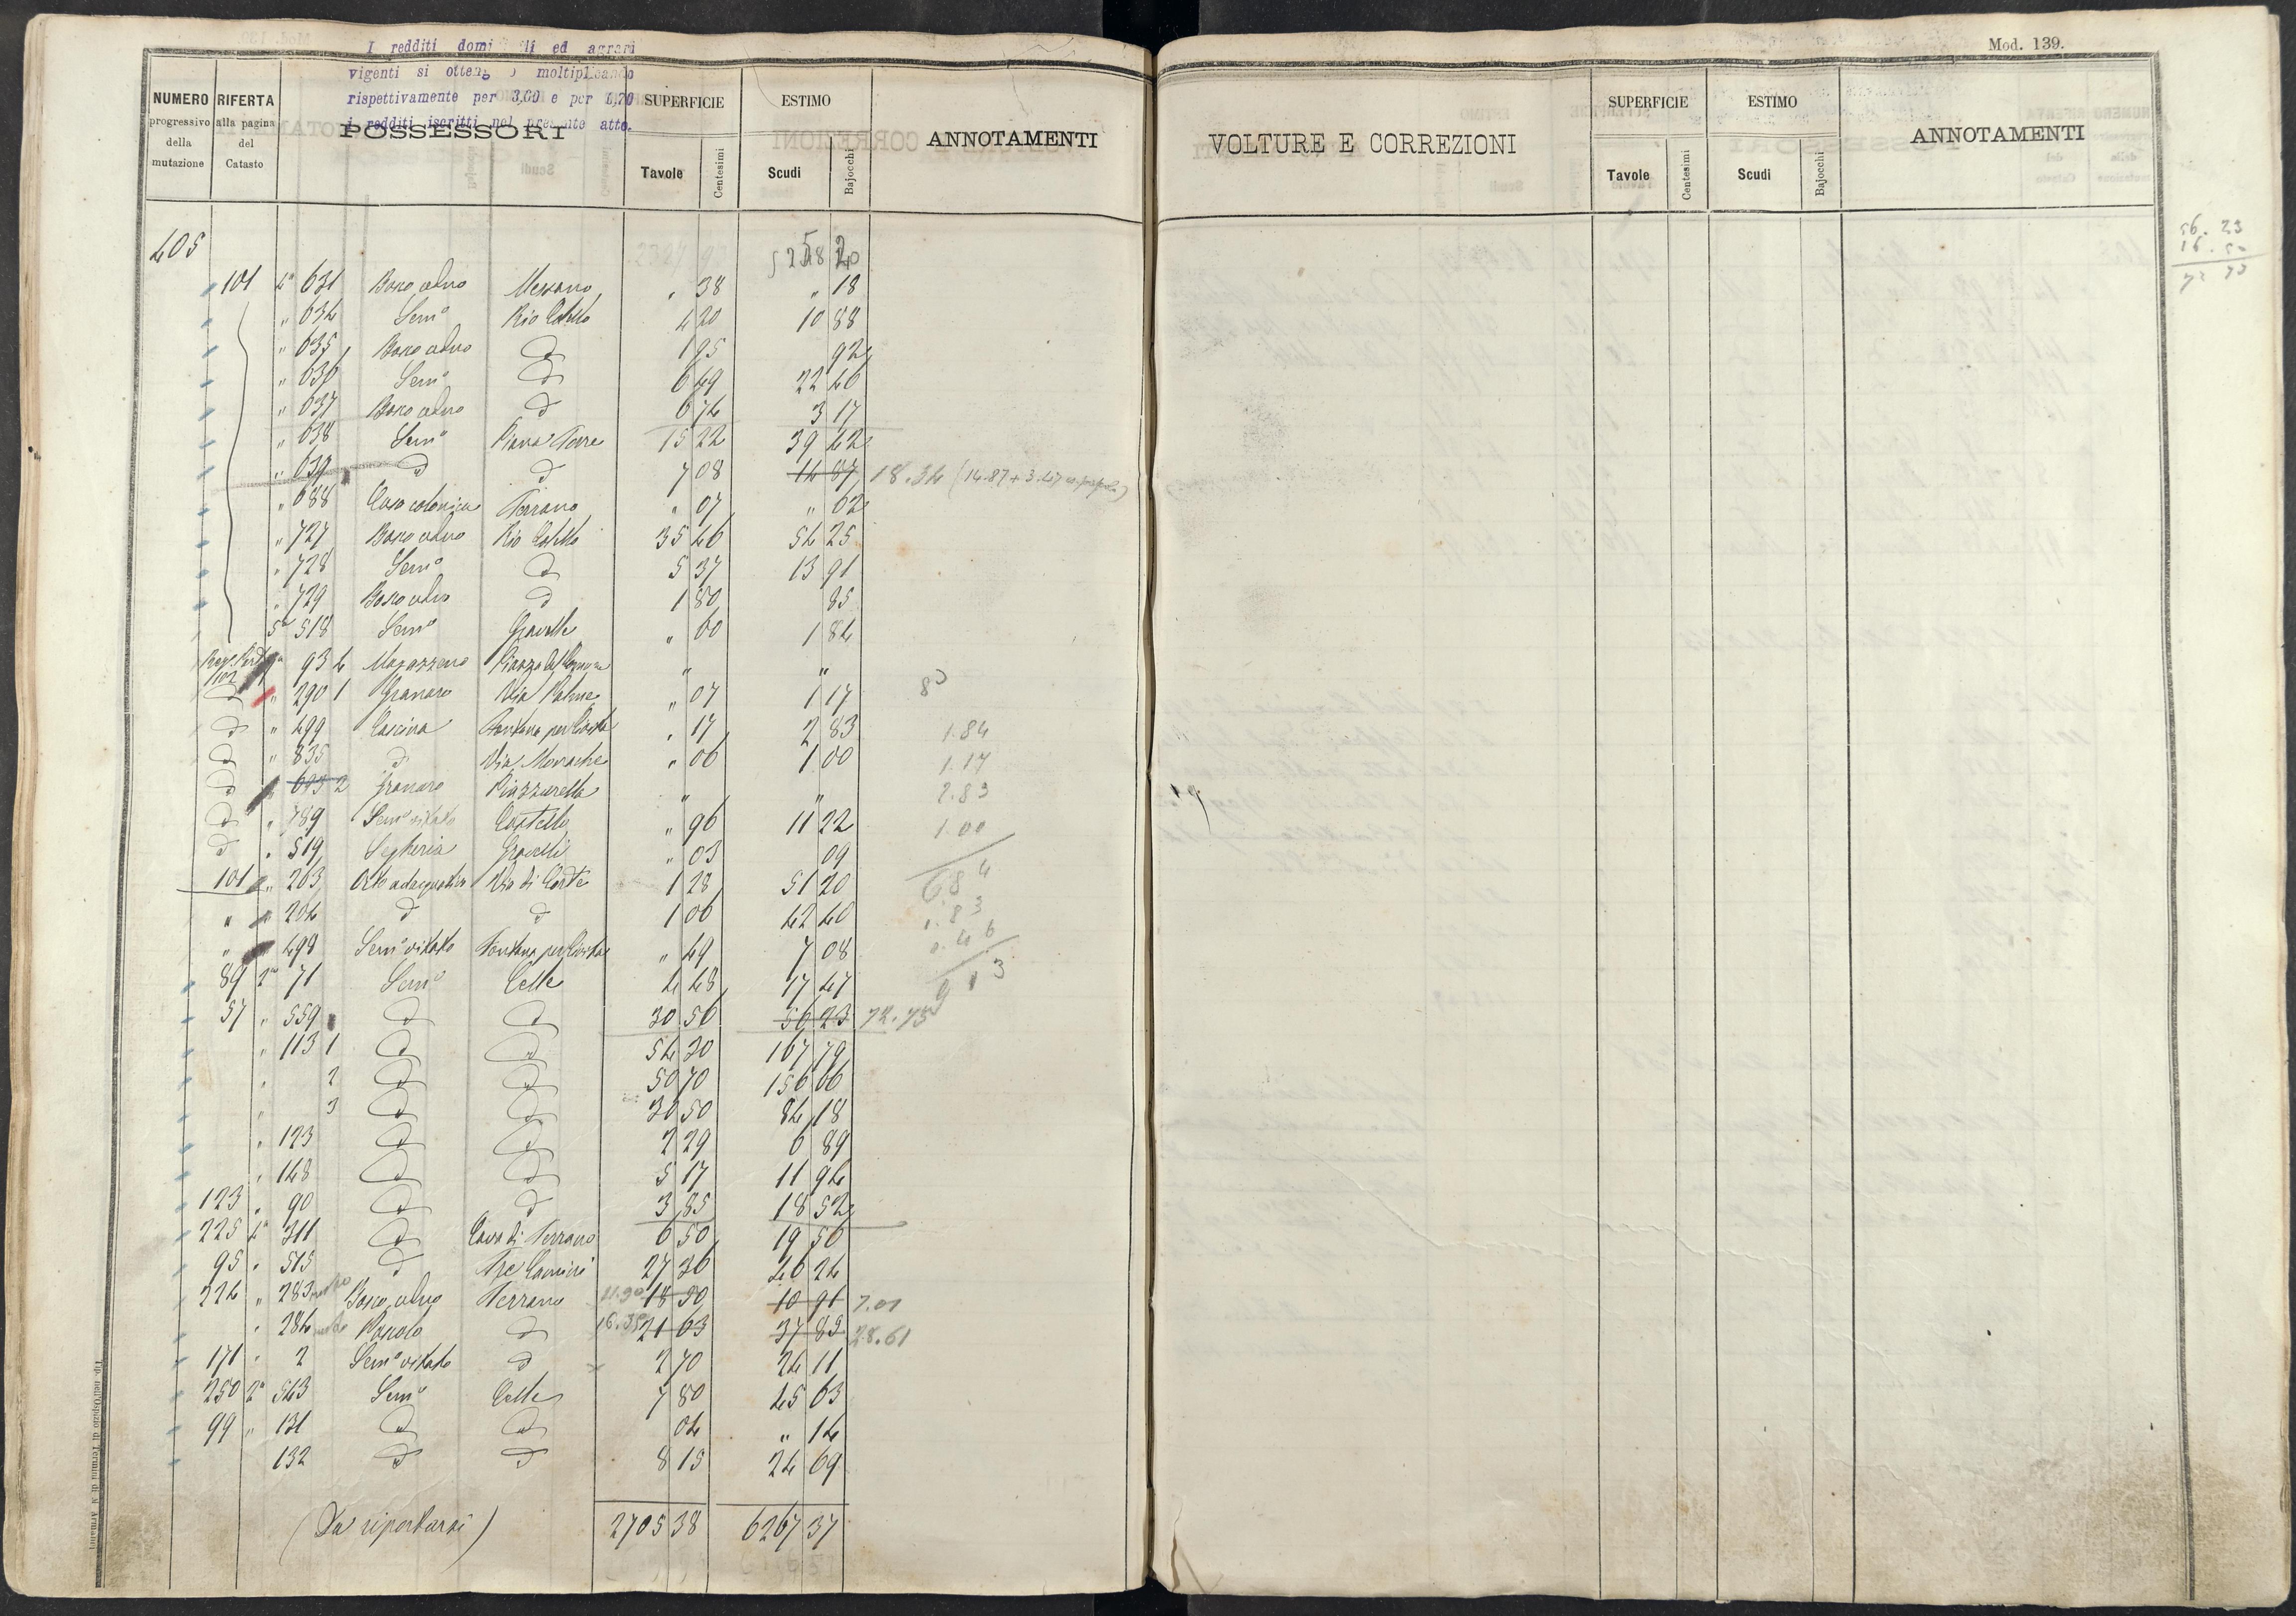 I redditi domi li ed agrari
vigenti si otteng o moltiplicando
rispettivamente per 3,60 e per 1,20
i redditi iscritti nel presente atto.
NUMERO progressivo della mutazione
RIFERTA alla pagina del Catasto
POSSESSORI
SUPERFICIE
Tavole Centesimi
ESTIMO
Scudi Bajocchi
ANNOTAMENTI
405
101 4a 631 Bosco ceduo 38 " 18
" 634 Semo 4 20 10 88
" 635 Bosco ceduo d 1 95 92
" 636 Semo d 6 49 22 46
" 637 Bosco ceduo d 6 74 3 17
" 638 Semo Piana Torre 15 22 39 42
" 639 d d 7 08 14 87 18.34 (14.87+3.47
" 688 Casa colonica Terrano " 07 " 02
" 727 Bosco ceduo 35 46 54 25
" 728 Semo d 5 37 13 91
" 729 Bosco ceduo d 1 80 85
5a 518 Semo Gravelle " 60 1 84
93 4 Magazzeno " "
d " 290 1 Granaro Via Palme " 07 1 17
d " 499 Cascina " 17 2 83 1.84
d " 835 d Via Monache " 06 1 00 1.17
d 2 Granaro Piazzarella " " 2.83
d " 789 Semo vitato Castello " 96 11 22 1.00
d " 519 Segheria Gravelli " 03 09
101 " 263 Orto adacquativo Via di Corte 1 28 51 20 6.84
" " 264 d d 1 06 42 40
" 498 Semo vitato " 49 7 08
89 2a 71 Semo Celle 4 48 17 47
57 " 559 d d 30 56 56 23 72.73
" 113 1 d d 54 30 167 79
" 2 d d 50 70 156 66
" 3 d d 30 50 84 18
" 123 d d 2 29 6 89
" 148 d d 5 17 11 94
123 " 90 d d 3 85 18 52
225 4a 311 d Cava di Terrano 6 50 19 50
95 " 515 d Tre Camini 27 36 46 24
224 " 283 Bosco ceduo Terrano 11.90 18 50 10 91 7.01
" 284 Pascolo d 16.35 21 63 37 85 28.61
171 " 2 Semo vitato d 2 70 24 11
250 2a 543 Semo Celle 7 80 45 63
99 " 131 d d 04 " 14
132 d d 8 15 24 69
(Da riportarsi) 2705 38 6267 37
Mod. 139.
VOLTURE E CORREZIONI
SUPERFICIE
Tavole Centesimi
ESTIMO
Scudi Bajocchi
ANNOTAMENTI
56.23
16.50
72 73